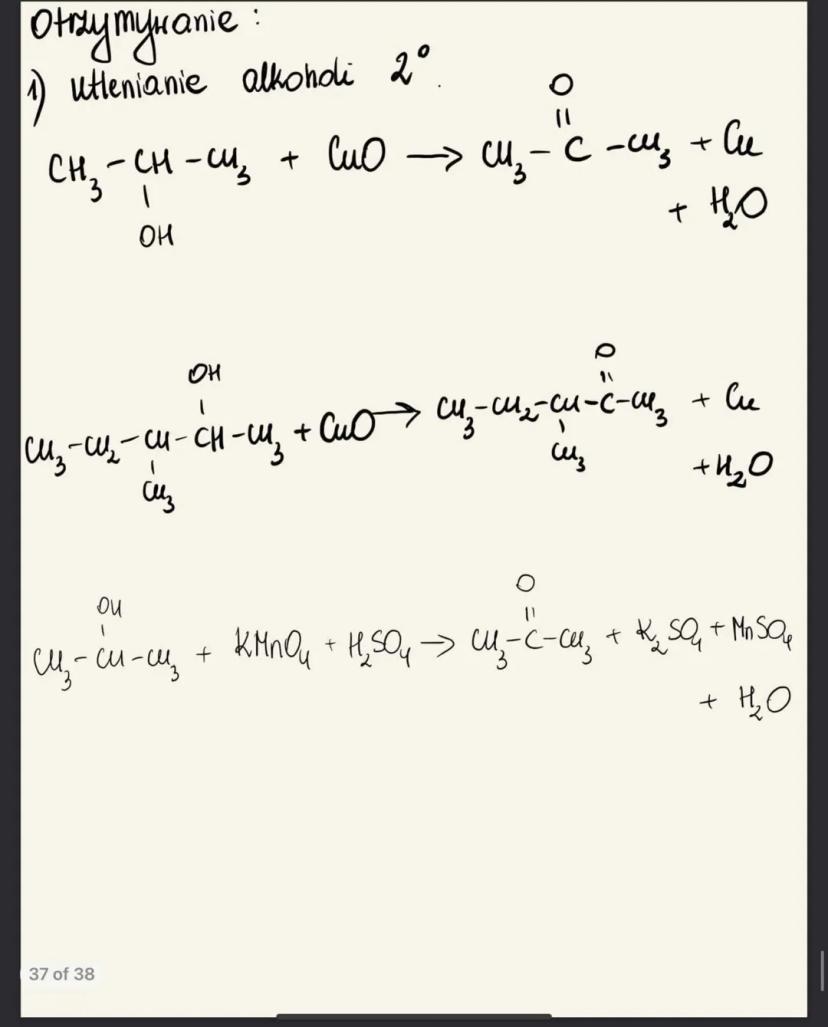 Otrzymywanie :
1) utlenianie alkoholi 2°.
O
||
CH3 – CH – CH3 + CuO → CH3 – C – CH3 + Cu
|
OH
+ H2O
OH
|
O
||
CH3 – CH2 – CH – CH – CH3 + CuO → CH3 – CH2 – CH – C – CH3 + Cu
|
CH3
|
CH3
+ H2O
OH
|
O
||
CH3 – CH – CH3 + KMnO4 + H2SO4 → CH3 – C – CH3 + K2SO4 + MnSO4
+ H2O
37 of 38